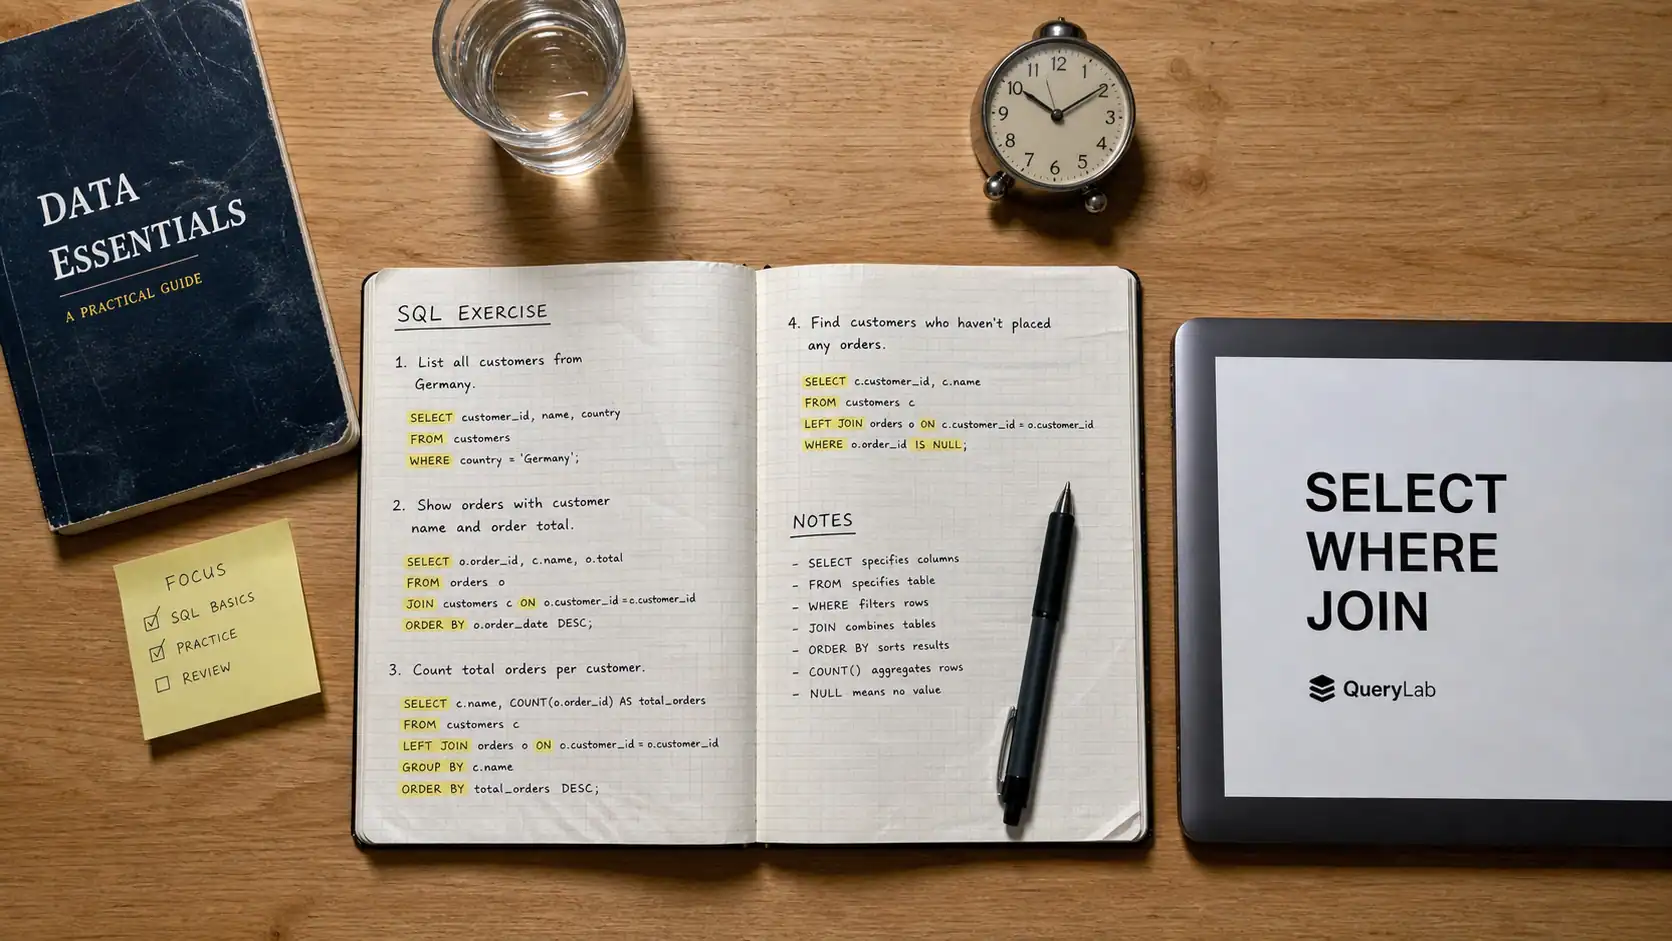 DATA
ESSENTIALS
A PRACTICAL GUIDE
12
1
2
3
4
5
6
7
8
9
10
11
SQL EXERCISE
1. List all customers from
Germany.
SELECT customer_id, name, country
FROM customers
WHERE country = 'Germany';
2. Show orders with customer
name and order total.
SELECT o.order_id, c.name, o.total
FROM orders o
JOIN customers c ON o.customer_id = c.customer_id
ORDER BY o.order_date DESC;
3. Count total orders per customer.
SELECT c.name, COUNT(o.order_id) AS total_orders
FROM customers c
LEFT JOIN orders o ON o.customer_id = o.customer_id
GROUP BY c.name
ORDER BY total_orders DESC;
4. Find customers who haven't placed
any orders.
SELECT c.customer_id, c.name
FROM customers c
LEFT JOIN orders o ON c.customer_id = o.customer_id
WHERE o.order_id IS NULL;
NOTES
- SELECT specifies columns
- FROM specifies table
- WHERE filters rows
- JOIN combines tables
- ORDER BY sorts results
- COUNT() aggregates rows
- NULL means no value
FOCUS
☑ SQL BASICS
☑ PRACTICE
☐ REVIEW
SELECT
WHERE
JOIN
QueryLab